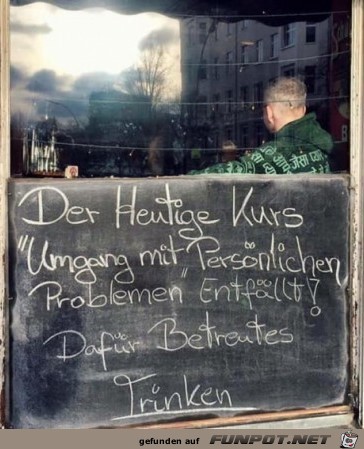 Der Heutige Kurs
"Umgang mit Persönlichen
Problemen" Entfällt!
Dafür Betreutes
Trinken
gefunden auf FUNPOT.NET